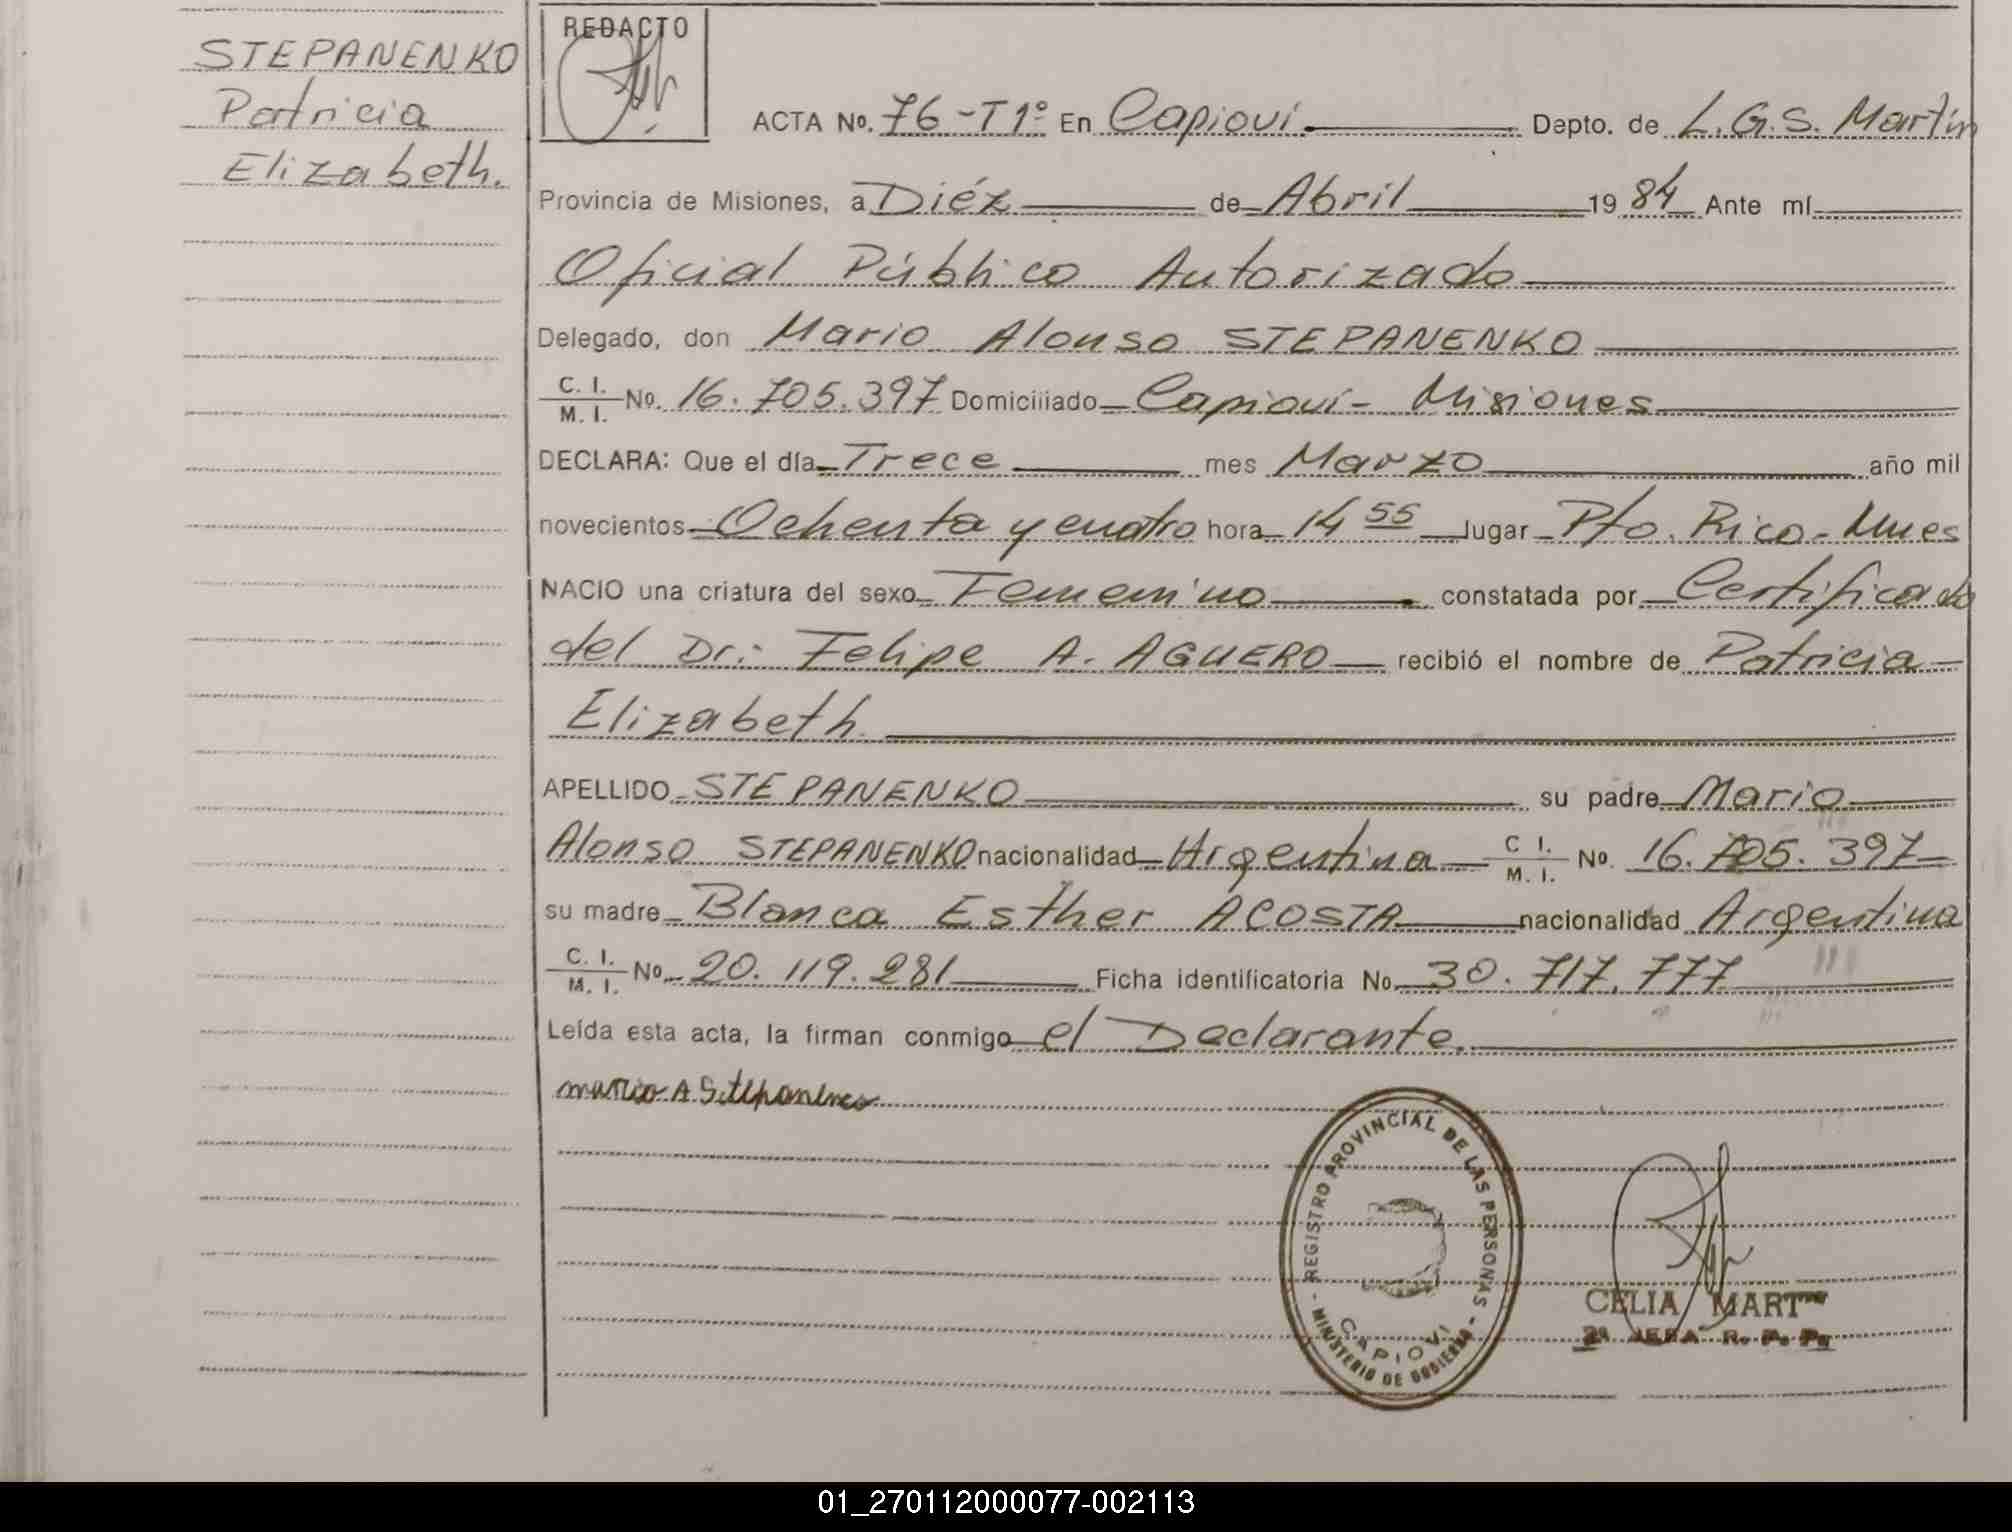 STEPANENKO
Patricia
Elizabeth.
REDACTO
ACTA No. 76-T1º En Capioví Depto. de L.G.S. Martín
Provincia de Misiones, a Diéz de Abril 1984 Ante mí
Oficial Público Autorizado
Delegado, don Mario Alonso STEPANENKO
C. I.
M. I. No. 16.705.397 Domiciliado Capioví - Misiones
DECLARA: Que el día Trece mes Marzo año mil
novecientos Ochenta y cuatro hora 14 55 lugar Pto. Rico - Mnes
NACIO una criatura del sexo Femenino constatada por Certificado
del Dr: Felipe A. AGUERO recibió el nombre de Patricia
Elizabeth
APELLIDO STEPANENKO su padre Mario
Alonso STEPANENKO nacionalidad Argentina C I. M. I. No. 16.705.397
su madre Blanca Esther ACOSTA nacionalidad Argentina
C. I.
M. I. No. 20.119.281 Ficha identificatoria No. 30.717.777
Leída esta acta, la firman conmigo el Declarante.
mario A Stepanenco
- REGISTRO PROVINCIAL DE LAS PERSONAS -
CAPIOVI
MINISTERIO DE GOBIERNO
CELIA MART
2ª JEFA R. P. P.
01_270112000077-002113